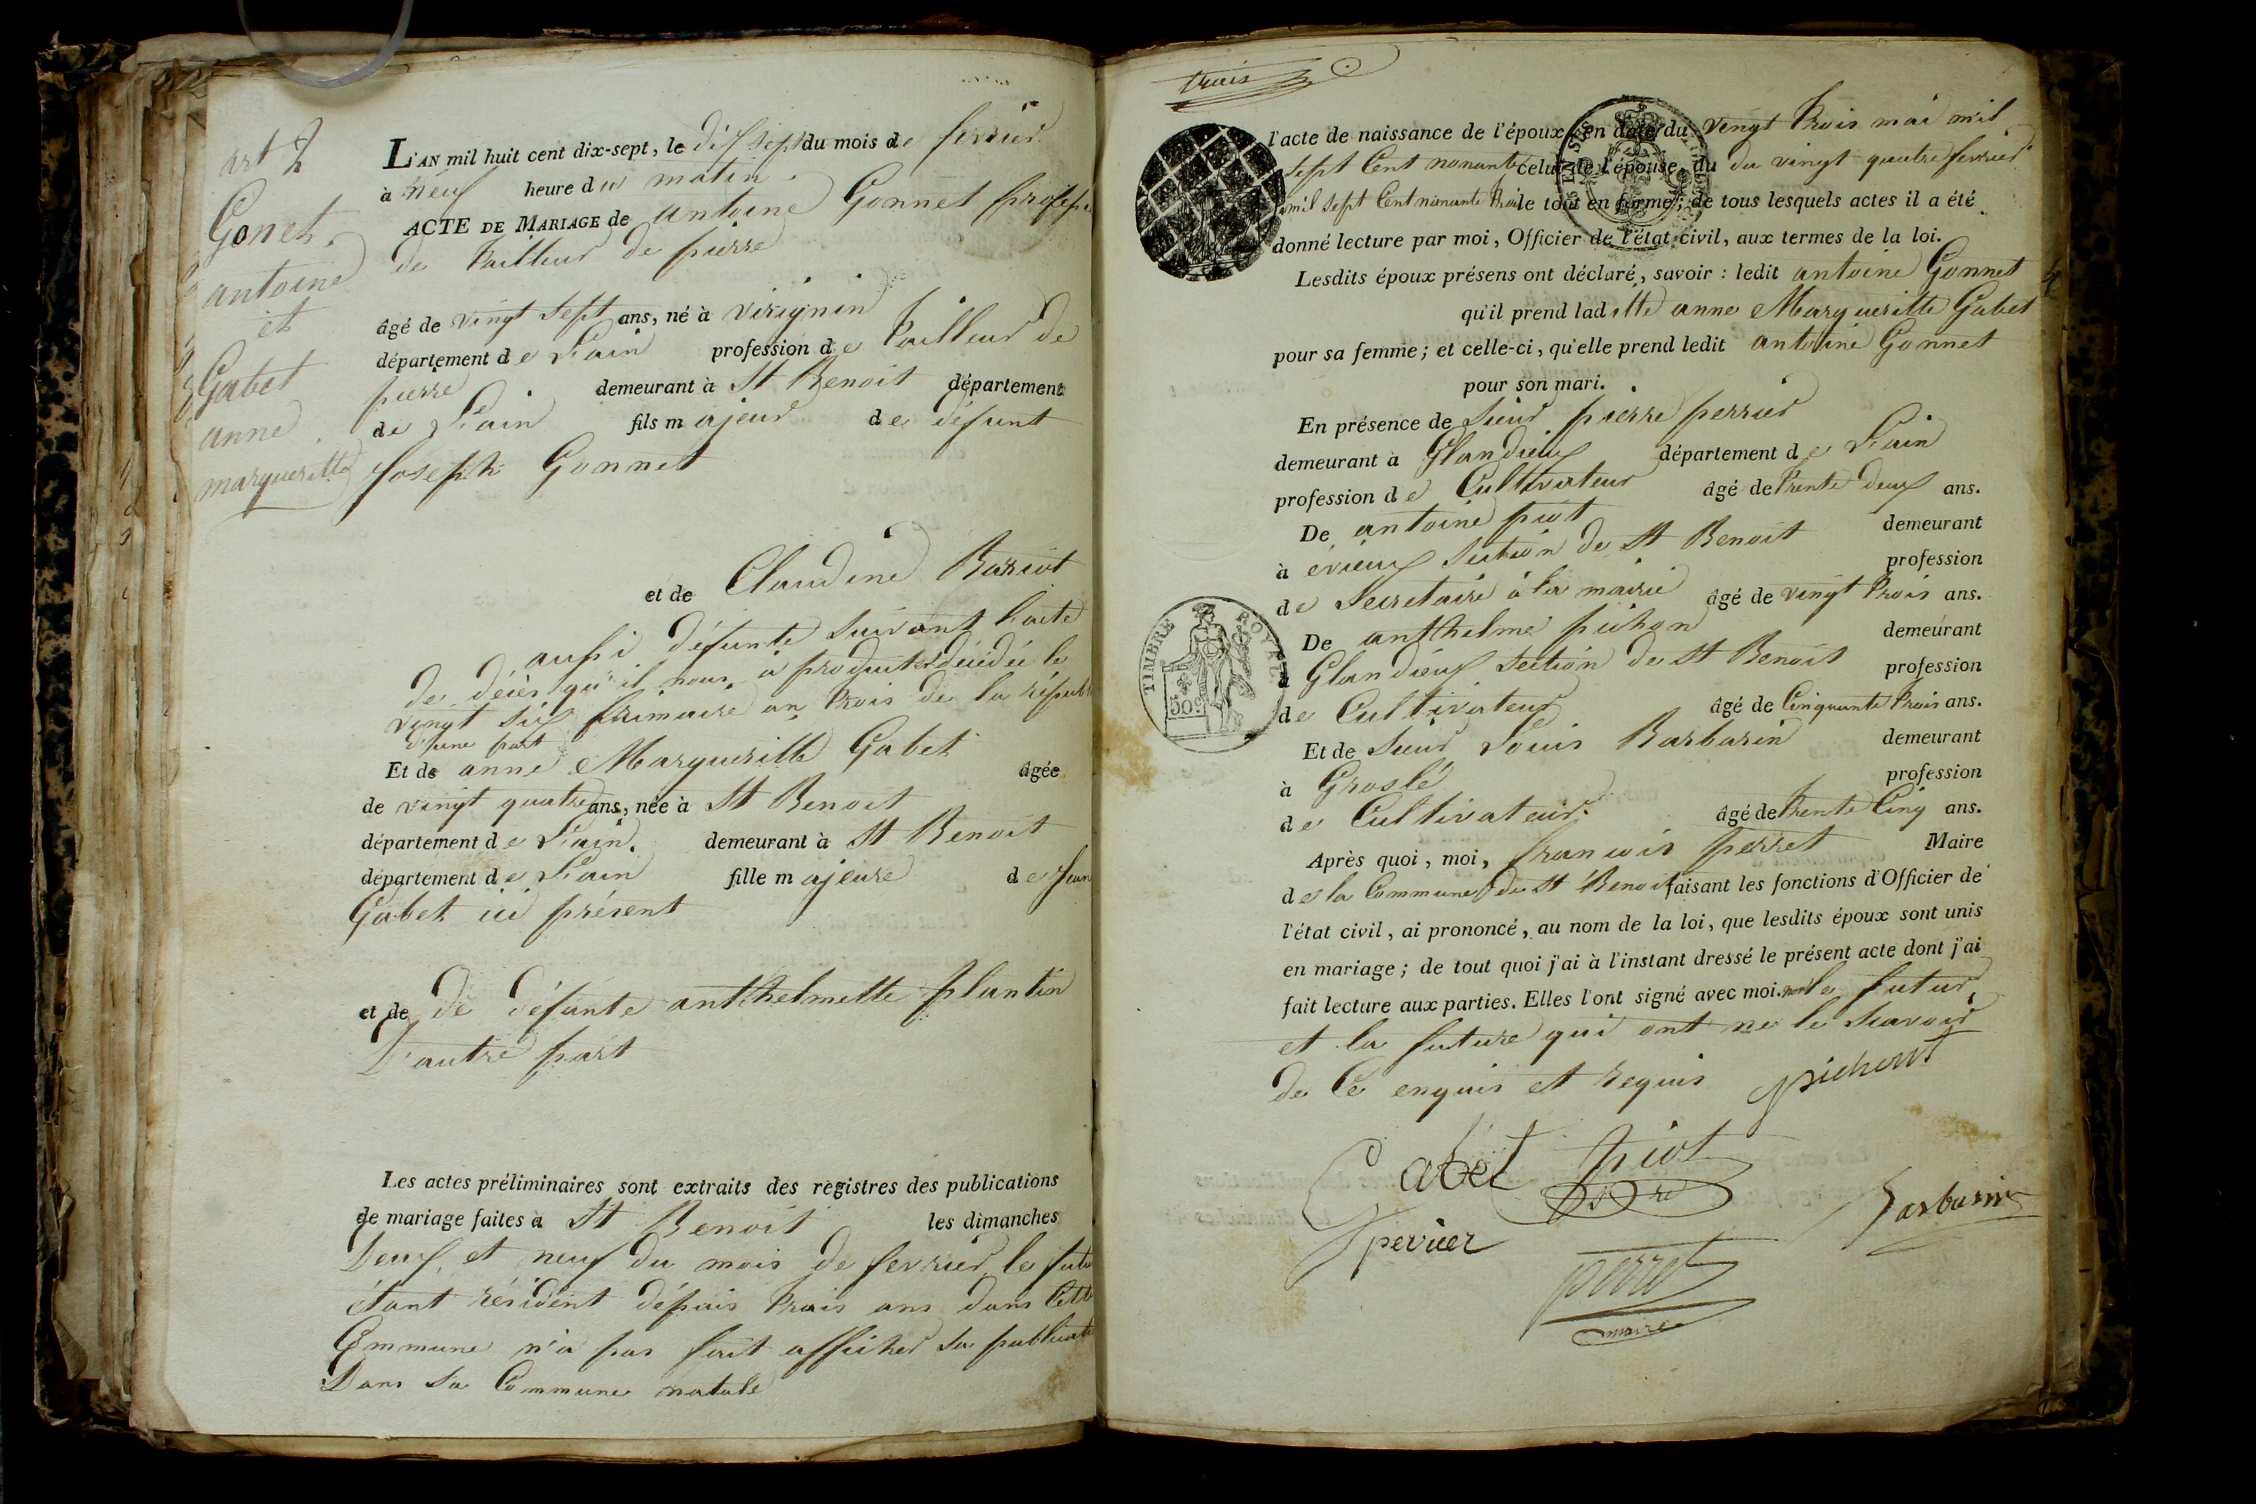 art 2
Gonet
antoine
et
Gabet
anne
margueritte
L'AN mil huit cent dix-sept, le dix sept du mois de fevrier
à neuf heure du matin.
ACTE DE MARIAGE de antoine Gonnet profess
de tailleur de pierre
âgé de vingt sept ans, né à virignin
département de L'ain profession de tailleur de
pierre demeurant à St Benoit département
de L'ain fils majeur de défunt
Joseph Gonnet
et de Claudine Barriot
aussi défunte suivant l'acte
de décès qu'il nous a produit décédée le
vingt six frimaire an trois de la républ
d'une part
Et de anne Margueritte Gabet âgée
de vingt quatre ans, née à St Benoit
département de L'ain. demeurant à St Benoit
département de L'ain fille majeure de Jean
Gabet ici présent
et de de défunte anthelmette plantin
D'autre part
Les actes préliminaires sont extraits des registres des publications
de mariage faites à St Benoit les dimanches
Deux et neuf du mois de fevrier, le futu
étant résident depuis trois ans dans cette
Commune n'a pas fait afficher sa publicat
Dans sa Commune natale
trois
l'acte de naissance de l'époux, en date du vingt trois mai mil
sept Cent nonante celui de l'épouse, du du vingt quatre fevrier
mil sept Cent nonante trois le tout en forme; de tous lesquels actes il a été
donné lecture par moi, Officier de l'état civil, aux termes de la loi.
Lesdits époux présens ont déclaré, savoir : ledit antoine Gonnet
qu'il prend laditte anne Margueritte Gabet
pour sa femme; et celle-ci, qu'elle prend ledit antoine Gonnet
pour son mari.
En présence de Sieur pierre perrier
demeurant à Glandieux département de L'ain
profession de Cultivateur âgé de trente deux ans.
De antoine piot demeurant
à évieux section de St Benoit profession
de Secretaire à la mairie âgé de vingt trois ans.
De anthelme pichon demeurant
à Glandieux section de St Benoit profession
de Cultivateur âgé de Cinquante trois ans.
Et de Sieur Louis Barbarin demeurant
à Groslé profession
de Cultivateur. âgé de trente Cinq ans.
Après quoi, moi, françois perret Maire
de la Commune de St Benoit faisant les fonctions d'Officier de
l'état civil, ai prononcé, au nom de la loi, que lesdits époux sont unis
en mariage; de tout quoi j'ai à l'instant dressé le présent acte dont j'ai
fait lecture aux parties. Elles l'ont signé avec moi. non le futur
et la future qui ont ne le scavoir
de ce enquis et requis pichont
Gabet piot
Sre
perrier Barbarin
perret
maire
TIMBRE ROYAL
50c